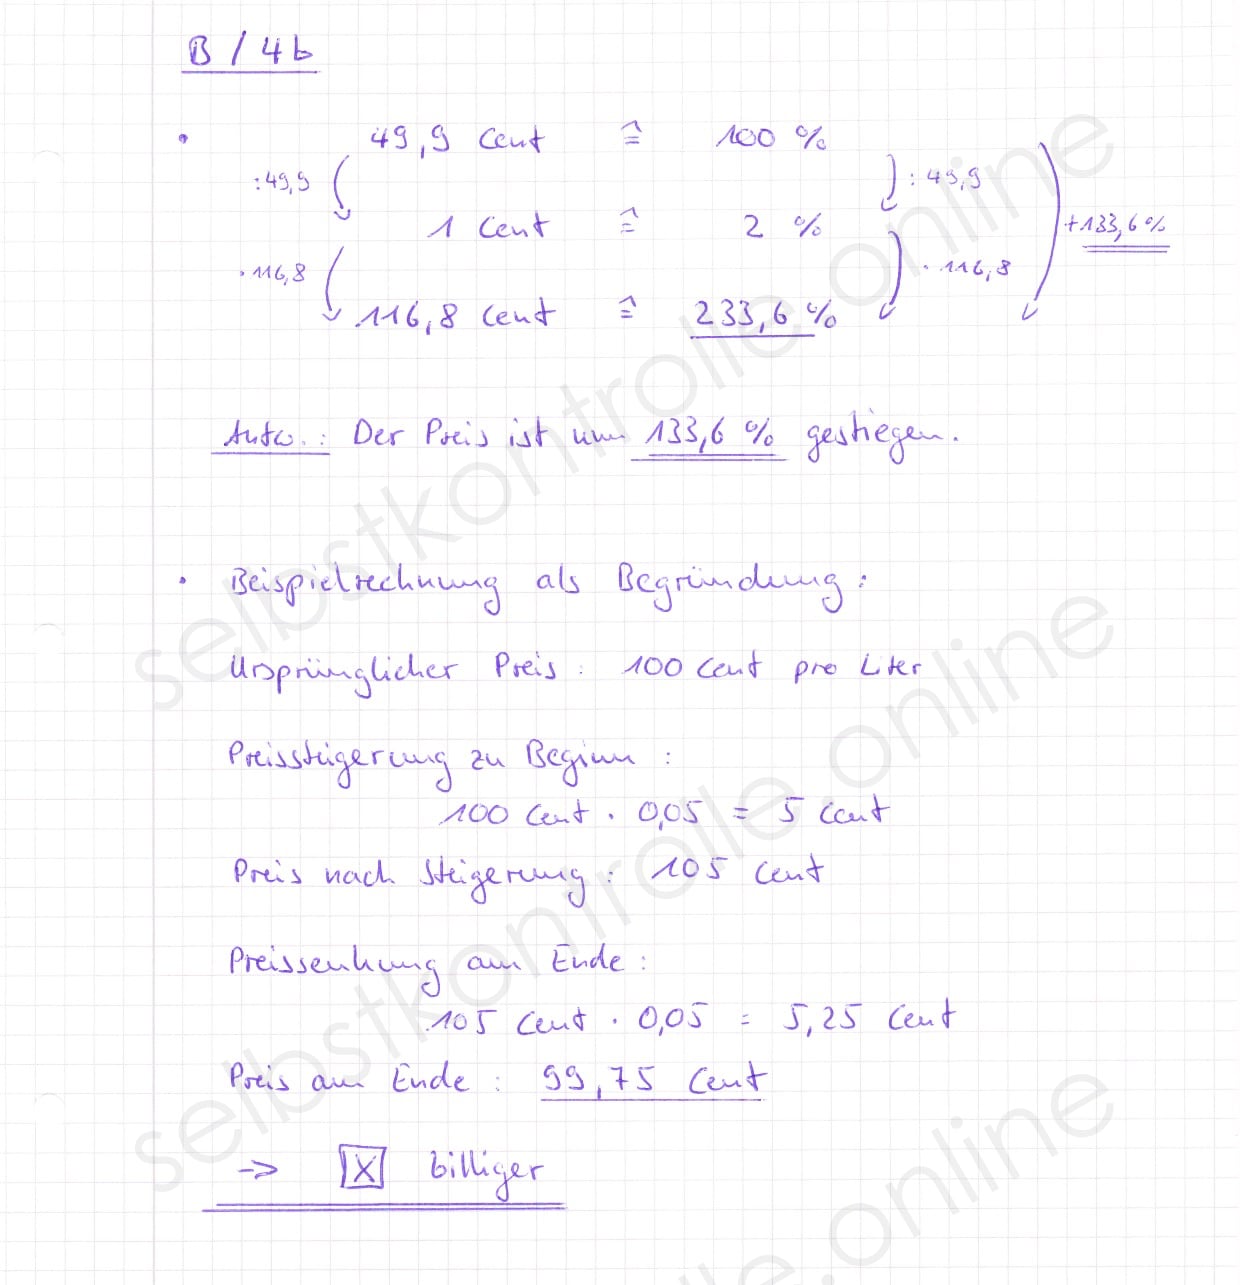 B / 4b
• 49,9 Cent ≙ 100 %
:49,9 :49,9
1 Cent ≙ 2 % +133,6%
·116,8 · 116,8
116,8 Cent ≙ 233,6 %
Antw.: Der Preis ist um 133,6 % gestiegen.
• Beispielrechnung als Begründung:
Ursprünglicher Preis: 100 Cent pro Liter
Preissteigerung zu Beginn:
100 Cent · 0,05 = 5 Cent
Preis nach Steigerung: 105 Cent
Preissenkung am Ende:
105 Cent · 0,05 = 5,25 Cent
Preis am Ende: 99,75 Cent
-> [X] billiger
selbstkontrolle.online
selbstkontrolle.online
selbstkontrolle.online